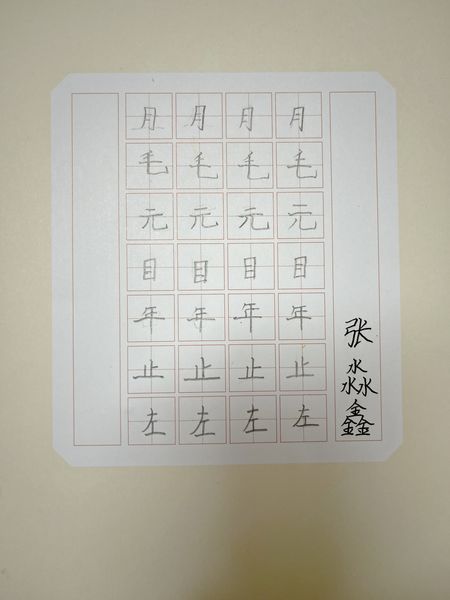 月月月月
毛毛毛毛
元元元元
目目目目
年年年年
止止止止
左左左左
张淼鑫